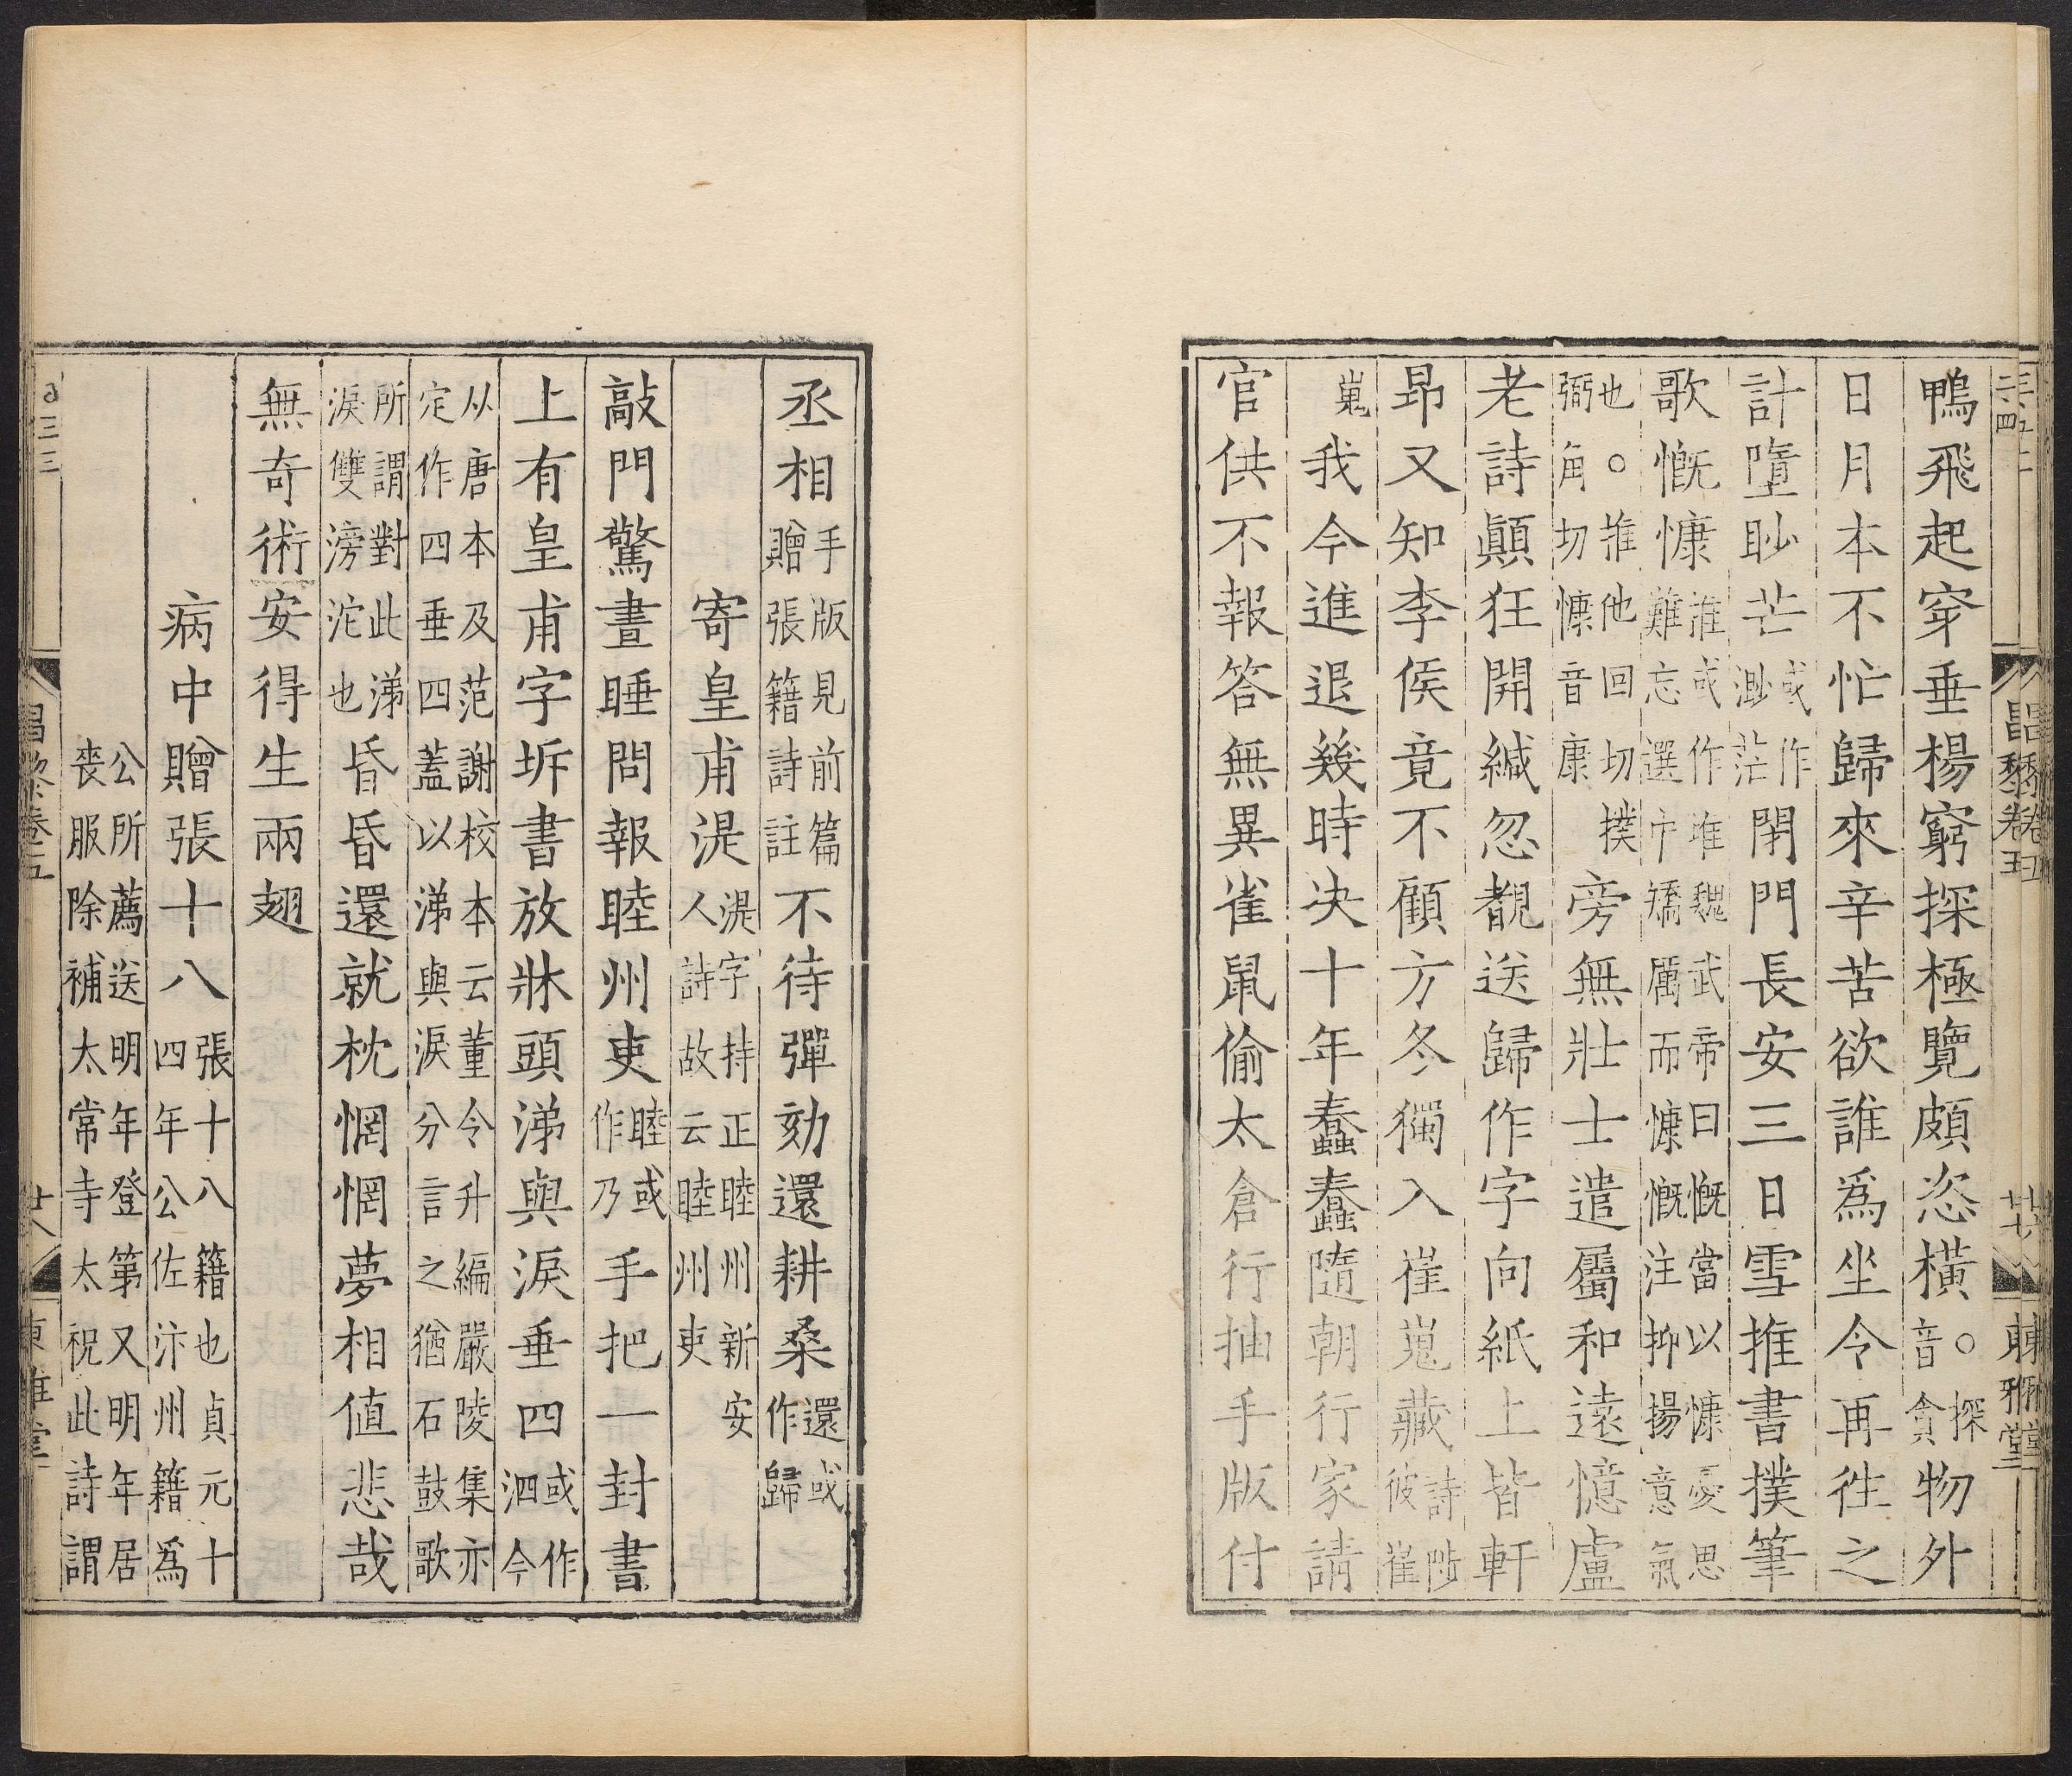 鴨飛起穿垂楊窮探極覽頗恣橫○探音貪物外
日月本不忙歸來辛苦欲誰爲坐令再往之
計墮眇芒或作渺茫閉門長安三日雪推書撲筆
歌慨慷誰或作唯魏武帝曰慨當以慷憂思難忘選中矯厲而慷慨注抑揚意氣
也○推他回切撲弼角切慷音康旁無壯士遣屬和遠憶盧
老詩顚狂開緘忽覩送歸作字向紙上皆軒
昂又知李侯竟不顧方冬獨入崔嵬藏詩陟彼崔
嵬我今進退幾時决十年蠢蠢隨朝行家請
官供不報答無異雀鼠偷太倉行抽手版付
昌黎卷五
廿七
東雅堂
丞相手版見前篇贈張籍詩註不待彈劾還耕桑還或作歸
寄皇甫湜湜字持正睦州新安人詩故云睦州吏
敲門驚晝睡問報睦州吏睦或作乃手把一封書
上有皇甫字坼書放牀頭涕與淚垂四或作泗今
从唐本及范謝校本云董令升編嚴陵集亦定作四垂四蓋以涕與淚分言之猶石鼓歌
所謂對此涕淚雙滂沱也昏昏還就枕惘惘夢相值悲哉
無奇術安得生兩翅
病中贈張十八張十八籍也貞元十四年公佐汴州籍爲
公所薦送明年登第又明年居喪服除補太常寺太祝此詩謂
昌黎卷五
廿八
東雅堂